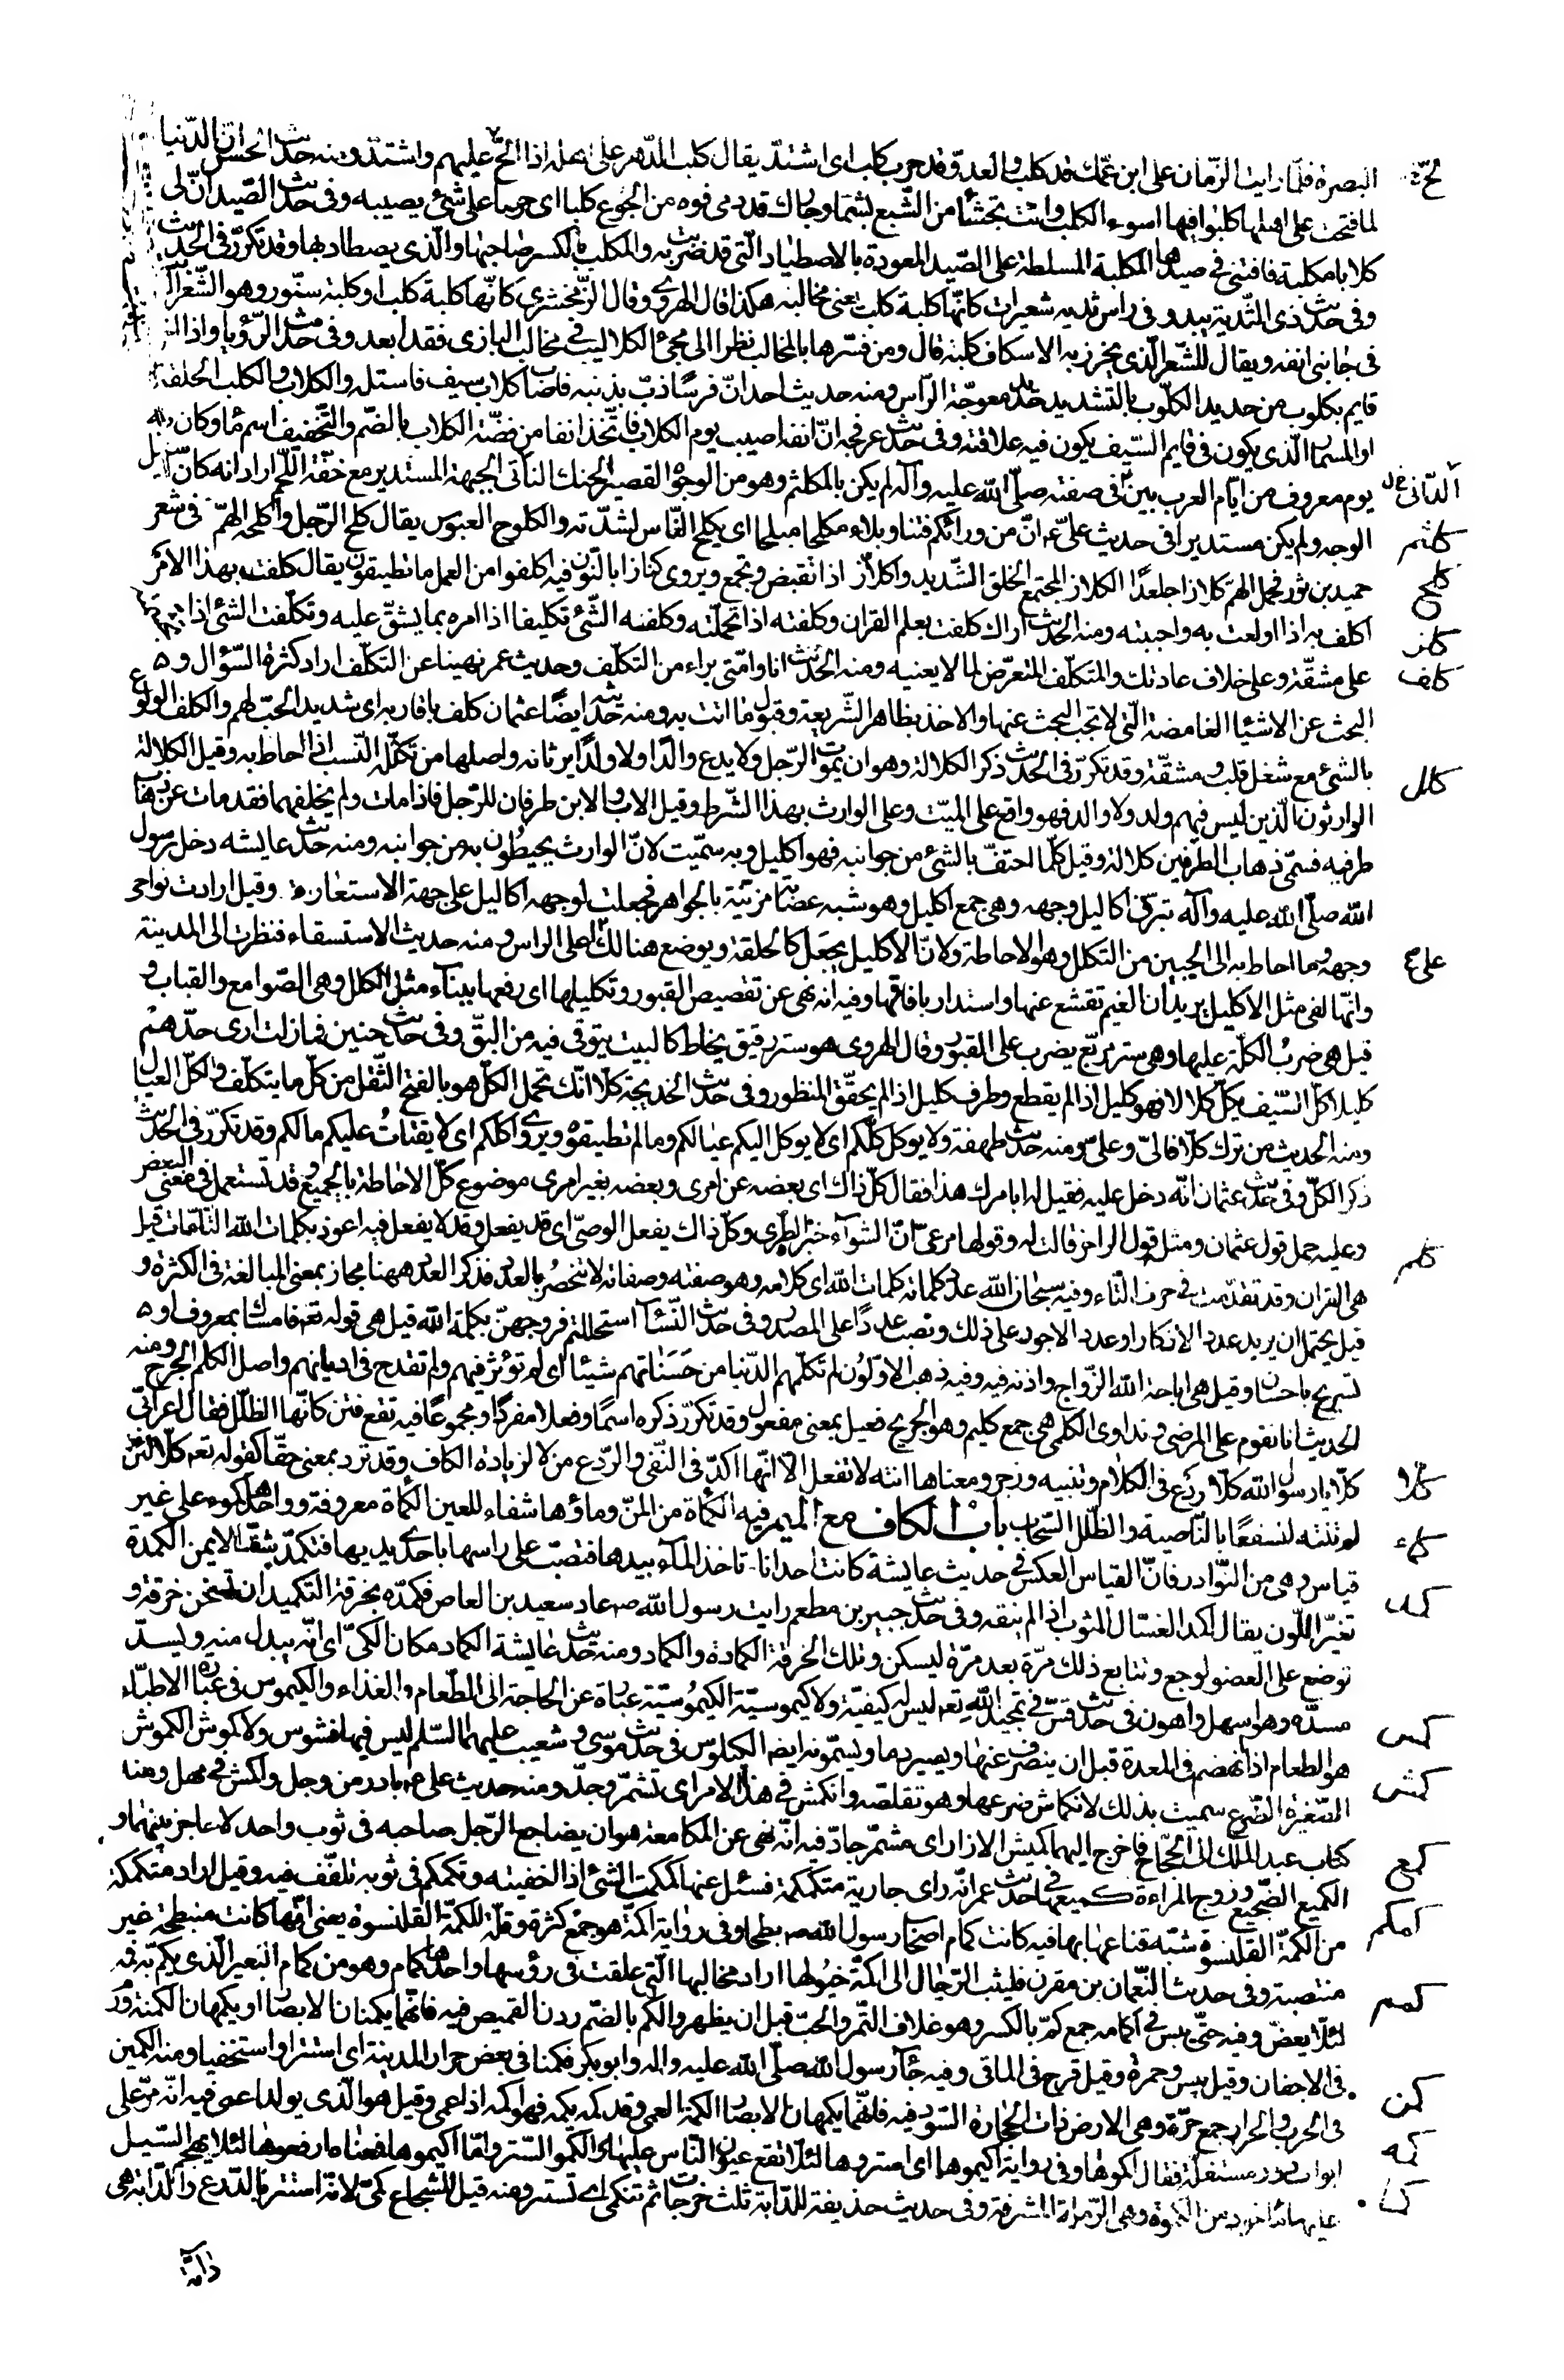 البصرة فلما رايت الزمان على ابن عمك قد كلب والعدو قد حرب كلب اى اشتد يقال كلب الدهر على اهله اذا الح عليهم واشتد ومنه حديث الحسن ان الدنيا
لما فتحت على اهلها كلبوا فيها اسوء الكلب وانت تجشأ من الشبع بشما وجارك قد دمى فوه من الجوع كلبا اى حرصا على شئ يصيبه وفى حديث الصيد ان لى
كلابا مكلبة فافتنى فى صيدها المكلبة المسلطة على الصيد المعودة بالاصطياد التى قد ضريت به والمكلب بالكسر صاحبها والذى يصطاد بها وقد تكرر فى الحديث
وفى حديث ذى الثدية يبدو فى راس ثديه شعيرات كانها كلبة كلب يعنى مخالبه هكذا قال الهروى وقال الزمخشرى كانها كلبة كلب او كلبة سنور وهو الشعر
فى جانبى انفه ويقال للشعر الذى يخرز به الاسكاف كلبة قال ومن فسرها بالمخالب نظرا الى مجئ الكلاليب فى مخالب البازى فقد ابعد وفى حديث الرؤيا واذا
قايم بكلوب من حديد الكلوب بالتشديد حديدة معوجة الراس ومنه حديث احد ان فرسا ذب بذنبه فاصاب كلاب سيف فاستله والكلاب والكلب الحلقة
او المسمار الذى يكون فى قايم السيف يكون فيه علاقته وفى حديث عرفجه ان انفه اصيب يوم الكلاب فاتخذ انفا من فضة الكلاب بالضم والتخفيف اسم ماء وكان به
يوم معروف من ايام العرب بين فى صفته صلى الله عليه وآله لم يكن بالمكلثم وهو من الوجوه القصير الحنك الناتى الجبهة المستدير مع خفة اللحم اراد انه كان اسيل
الوجه ولم يكن مستديرا فى حديث على ع ان من ورائكم فتنا وبلاء مكلحا مبلحا اى يكلح الناس لشدته والكلوح العبوس يقال كلح الرجل واكلحه الهم فى شعر
حميد بن ثور فحمل الهم كلازا جلعدا الكلاز المجتمع الخلق الشديد واكلاز اذا تقبض وتجمع ويروى كنازا بالنون فيه اكلفوا من العمل ما تطيقون يقال كلفت بهذا الامر
اكلف به اذا اولعت به واحببته ومنه الحديث اراك كلفت بعلم القران وكلفته اذا تحملته وكلفه الشئ تكليفا اذا امره بما يشق عليه وتكلفت الشئ اذا
على مشقة وعلى خلاف عادتك والمتكلف المتعرض لما لا يعنيه ومنه الحديث انا وامتى براء من التكلف وحديث عمر نهينا عن التكلف اراد كثرة السؤال و
البحث عن الاشياء الغامضة التى لا تجب البحث عنها والاخذ بظاهر الشريعة وقبول ما اتت به ومنه حديثه ايضا عثمان كلف باقاربه اى شديد الحب لهم والكلف الولوع
بالشئ مع شغل قلب ومشقة وقد تكرر فى الحديث ذكر الكلالة وهو ان يموت الرجل ولا يدع والدا ولا ولدا يرثانه واصلها من تكلله النسب اذا احاط به وقيل الكلالة
الوارثون الذين ليس فيهم ولد ولا والد فهو واقع على الميت وعلى الوارث بهذا الشرط وقيل الاب والابن طرفان للرجل فاذا مات ولم يخلفهما فقد مات عن ذهاب
طرفيه فسمى ذهاب الطرفين كلالة وقيل كلما احتف بالشئ من جوانبه فهو اكليل وبه سميت لان الوارث يحيطون به من جوانبه ومنه حديث عايشه دخل رسول
الله صلى الله عليه وآله تبرق اكاليل وجهه وهى جمع اكليل وهو شبه عصابة مزينة بالجواهر فجعلت لوجهه اكاليل على جهة الاستعارة وقيل ارادت نواحى
وجهه وما احاط به الى الجبين من التكلل وهو الاحاطة ولان الاكليل يجعل كالحلقة ويوضع هنالك اعلى الراس ومنه حديث الاستسقاء فنظرت الى المدينة
وانها لفى مثل الاكليل يريد ان الغيم تقشع عنها واستدار بافاقها وفيه انه نهى عن تقصيص القبور وتكليلها اى رفعها ببناء مثل الكلل وهى الصوامع والقباب و
قيل هى ضرب الكلة عليها وهى ستر مربع يضرب على القبور وقال الهروى هو ستر رقيق يخاط كالبيت يتوقى فيه من البق وفى حديث حنين فما زلت ارى حدهم
كليلا كل السيف يكل كلالا فهو كليل اذا لم يقطع وطرف كليل اذا لم يحقق المنظور وفى حديث الخديجة كلا انك تحمل الكل هو بالفتح الثقل من كل ما يتكلف والكل العيال
ومنه الحديث من ترك كلا فالى وعلى ومنه حديث طهفة ولا يوكل كلكم اى لا يوكل اليكم عيالكم وما لم تطيقوه ويروى اكلكم اى لا يفتات عليكم مالكم وقد تكرر فى الحديث
ذكر الكل وفى حديث عثمان انه دخل عليه فقيل له ابامرك هذا فقال كل ذاك اى بعضه عن امرى وبعضه بغير امرى موضوع كل الاحاطة بالجميع وقد تستعمل فى معنى البعض
وعليه حمل قول عثمان ومثل قول الراجز قالت له وقولها مرعى ان الشواء خيره الطرى وكل ذاك يفعل الوصى اى قد يفعل وقد لا يفعل فيه اعوذ بكلمات الله التامات قيل
هى القران وقد تقدمت فى حرف التاء وفيه سبحان الله عدد كلماته كلمات الله اى كلامه وهو صفته وصفاته لا تنحصر بالعدد فذكر العدد ههنا مجاز بمعنى المبالغة فى الكثرة و
قيل يحتمل ان يريد عدد الاذكار او عدد الاجور على ذلك ونصب عددا على المصدر وفى حديث النساء استحللتم فروجهن بكلمة الله قيل هى قوله تع فامساك بمعروف او
تسريح باحسان وقيل هى اباحة الله الزواج واذنه فيه وفيه ذهب الاولون لم تكلمهم الدنيا من حسناتهم شيئا اى لم تؤثر فيهم ولم تقدح فى اديانهم واصل الكلم الجرح ومنه
الحديث انا نقوم على المرضى ونداوى الكلمى هى جمع كليم وهو الجريح فعيل بمعنى مفعول وقد تكرر ذكره اسما وفعلا مفردا ومجموعا فيه تقع فتن كانها الظلل فقال اعرابى
كلا يا رسول الله كلا ردع فى الكلام وتنبيه وزجر ومعناها انته لا تفعل الا انها اكد فى النفى والردع من لا لزيادة الكاف وقد ترد بمعنى حقا كقوله تع كلا لئن
لم تنته لنسفعا بالناصية والظلل السحاب باب الكاف مع الميم فيه الكمأة من المن وماؤها شفاء للعين الكمأة معروفة وواحدها كموء على غير
قياس وهى من النوادر فان القياس العكس فى حديث عايشة كانت احدانا تاخذ الماء بيدها فتصب على راسها باحدى يديها فتكمد شقها الايمن الكمدة
تغير اللون يقال اكمد الغسال الثوب اذا لم ينقه وفى حديث جبير بن مطعم رايت رسول الله ص عاد سعيد بن العاص فكمده بخرقة التكميد ان تسخن خرقة و
توضع على العضو لوجع وتتابع ذلك مرة بعد مرة ليسكن وتلك الخرقة الكمادة والكماد ومنه حديث عايشة الكماد مكان الكى اى انه يبدل منه ويسد
مسده وهو اسهل واهون فى حديث قس فى تمجيد الله تع ليس له كيفية ولا كيموسية الكيموسية عبارة عن الحاجة الى الطعام والغذاء والكيموس فى عبارة الاطباء
هو الطعام اذا انهضم فى المعدة قبل ان ينصرف عنها ويصير دما ويسمونه ايضا الكيلوس فى حديث موسى وشعيب عليهما السلم ليس فيها فشوش ولا كموش الكموش
الصغيرة الضرع سميت بذلك لانكماش ضرعها وهو تقلصه وانكمش فى هذا الامر اى تشمر وجد ومنه حديث على ع بادر من وجل واكمش فى مهل ومنه
كتاب عبد الملك الى الحجاج فاخرج اليهما كميش الازار اى مشمر جاد فيه انه نهى عن المكامعة هو ان يضاجع الرجل صاحبه فى ثوب واحد لا حاجز بينهما و
الكميع الضجيع وزوج المراءة كميعها فى حديث عمر انه راى جارية متكمكمة فسئل عنها كمكمت الشئ اذا اخفيته وتكمكم فى ثوبه تلفف فيه وقيل اراد متكمكمة
من الكمة القلنسوة شبه قناعها بها فيه كانت كمام اصحاب رسول الله ص بطحا وفى رواية اكمة هو جمع كثرة وقلة للكمة القلنسوة يعنى انها كانت منبطحة غير
منتصبة وفى حديث النعمان بن مقرن فليثب الرجال الى اكمة خيولها اراد مخاليها التى علقت فى رؤسها واحدها كمام وهو من كمام البعير الذى يكم به فمه
لئلا يعض وفيه حتى يبس فى اكمامه جمع كم بالكسر وهو غلاف الثمر والحب قبل ان يظهر والكم بالضم ردن القميص فيه فانهما يكمنان الابصار او يكمهان الكمنة ورم
فى الاجفان وقيل يبس وحمرة وقيل قرح فى الماقى وفيه جاء رسول الله صلى الله عليه واله وابو بكر فكمنا فى بعض حرار المدينة اى استترا واستخفيا ومنه الكمين
فى الحرب والحرار جمع حرة وهى الارض ذات الحجارة السود فيه فانهما يكمهان الابصار الكمه العمى وقد كمه يكمه فهو اكمه اذا عمى وقيل هو الذى يولد اعمى فيه انه مر على
ابواب دور مستفلة فقال اكموها وفى رواية اكيموها اى استروها لئلا تقع عيون الناس عليها والكمو الستر واما اكيموها فمعناه ارفعوها لئلا يهجم السيل
عليها ماخوذ من الكومة وهى الرملة المشرفة وفى حديث حذيفة للدابة ثلث خرجات ثم تنكمى اى تستتر ومنه قيل للشجاع كمى لانه استتر بالدرع والدابة هى
دابة
كلثم
كلح
كلز
كلف
كلل
كلم
كلا
كماء
كمد
كمس
كمش
كمع
كمكم
كمم
كمن
كمه
كما